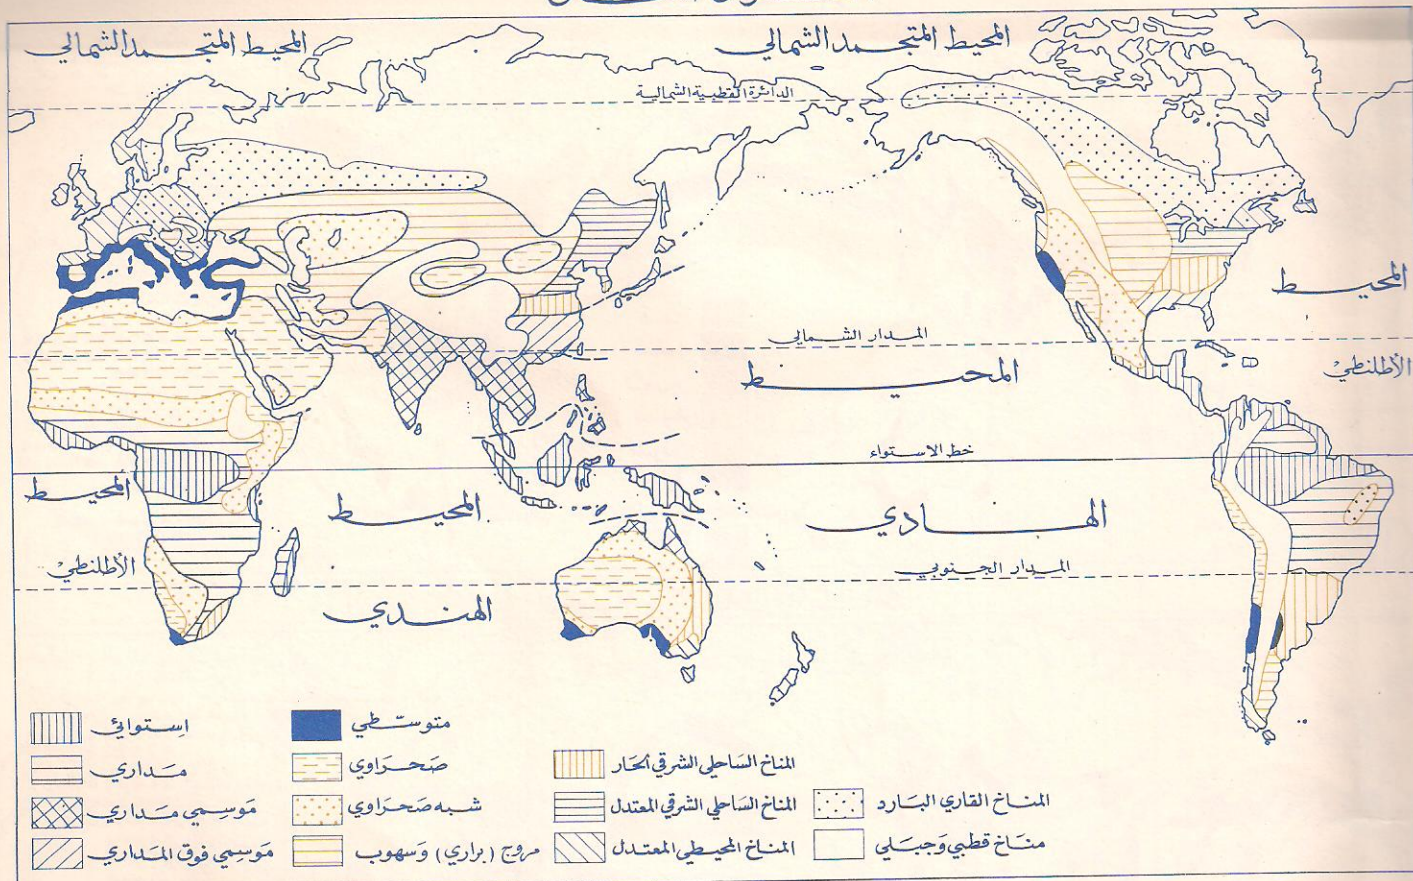 المحيط المتجمد الشمالي
المحيط المتجمد الشمالي
الدائرة القطبية الشمالية
المحيط
الأطلنطي
المدار الشمالي
المحيط
خط الاستواء
الهادي
المدار الجنوبي
المحيط
الأطلنطي
المحيط
الهندي
استوائي
مداري
موسمي مداري
موسمي فوق المداري
متوسطي
صحراوي
شبه صحراوي
مروج (براري) وسهوب
المناخ الساحلي الشرقي الحار
المناخ الساحلي الشرقي المعتدل
المناخ المحيطي المعتدل
المناخ القاري البارد
مناخ قطبي وجبلي